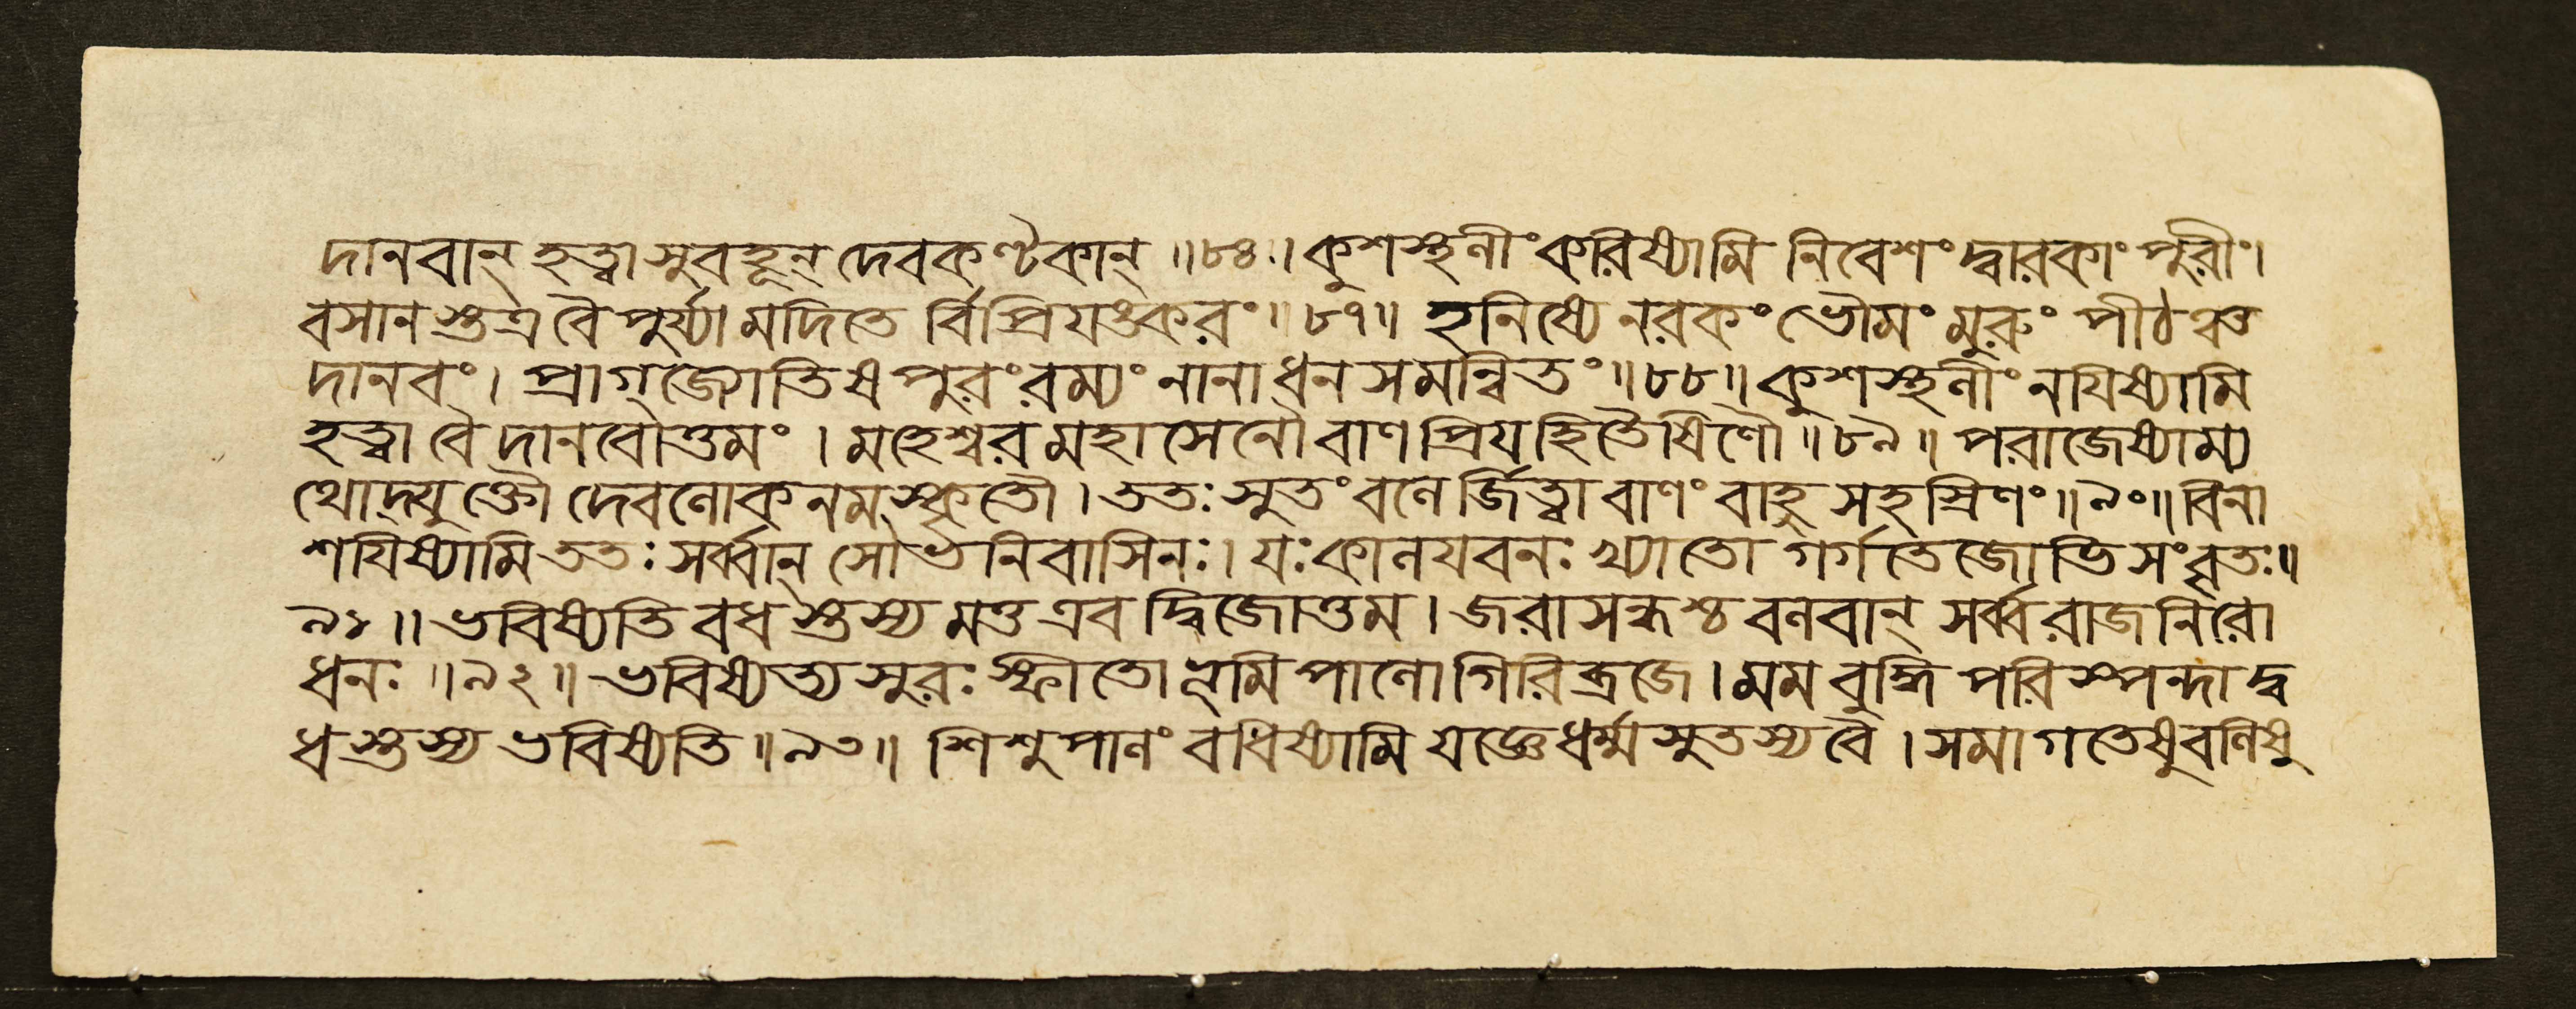 দানবান্ হত্বা সুবহূন্ দেবকণ্টকান্ ॥৮৬॥ কুশস্থলীং করিষ্যামি নিবেশং দ্বারকাং পুরীং।
বসানস্তত্র বৈ পুর্য্যামদিতে র্বিপ্রিযঙ্করং॥৮৭॥ হনিষ্যে নরকং ভৌমং মুরুং পীঠঞ্চ
দানবং। প্রাগ্জ্যোতিষপুরং রম্যং নানাধনসমন্বিতং॥৮৮॥ কুশস্থলীং নযিষ্যামি
হত্বা বৈ দানবোত্তমং । মহেশ্বরমহাসেনৌ বাণপ্রিযহিতৈষিণৌ॥৮৯॥ পরাজেষ্যাম্য
থোদ্যুক্তৌ দেবলোকনমস্কৃতৌ। ততঃ সুতং বলের্জিত্বা বাণং বাহুসহস্রিণং॥৯০॥ বিনা
শযিষ্যামি ততঃ সর্ব্বান্ সৌভনিবাসিনঃ। যঃ কালযবনঃ খ্যাতো গর্গতেজোভিসংবৃতঃ॥
৯১॥ ভবিষ্যতি বধস্তস্য মত্ত এব দ্বিজোত্তম। জরাসন্ধশ্চ বলবান্ সর্ব্বরাজনিরো
ধনঃ ॥৯২॥ ভবিষ্যত্যসুরঃ স্ফীতো ভূমিপালো গিরিব্রজে। মম বুদ্ধিপরিস্পন্দাদ্ব
ধস্তস্য ভবিষ্যতি॥৯৩॥ শিশুপালং বধিষ্যামি যজ্ঞে ধর্ম্মসুতস্য বৈ। সমাগতেষু বলিষু